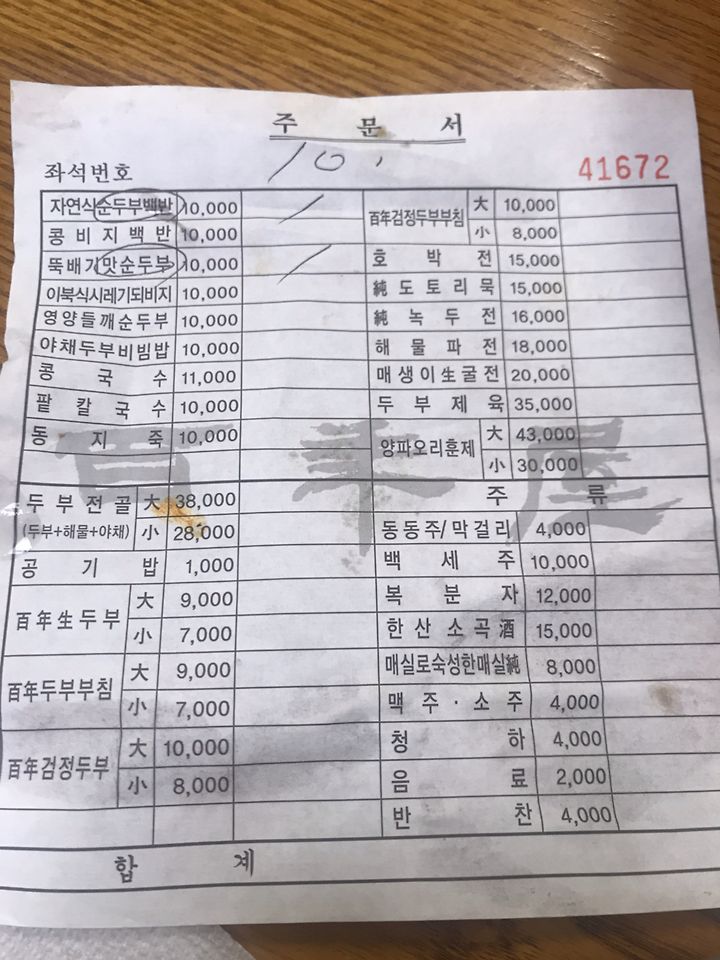 주 문 서
좌석번호 10. 41672
자연식순두부백반 10,000 /
콩비지백반 10,000
뚝배기맛순두부 10,000 /
이북식시레기되비지 10,000
영양들깨순두부 10,000
야채두부비빔밥 10,000
콩 국 수 11,000
팥 칼 국 수 10,000
동 지 죽 10,000
두부전골 大 38,000
(두부+해물+야채) 小 28,000
공 기 밥 1,000
百年生두부 大 9,000
小 7,000
百年두부부침 大 9,000
小 7,000
百年검정두부 大 10,000
小 8,000
百年검정두부부침 大 10,000
小 8,000
호 박 전 15,000
純 도 토 리 묵 15,000
純 녹 두 전 16,000
해 물 파 전 18,000
매생이生굴전 20,000
두 부 제 육 35,000
양파오리훈제 大 43,000
小 30,000
주 류
동동주/막걸리 4,000
백 세 주 10,000
복 분 자 12,000
한산소곡酒 15,000
매실로숙성한매실純 8,000
맥 주 · 소 주 4,000
청 하 4,000
음 료 2,000
반 찬 4,000
합 계
百年屋